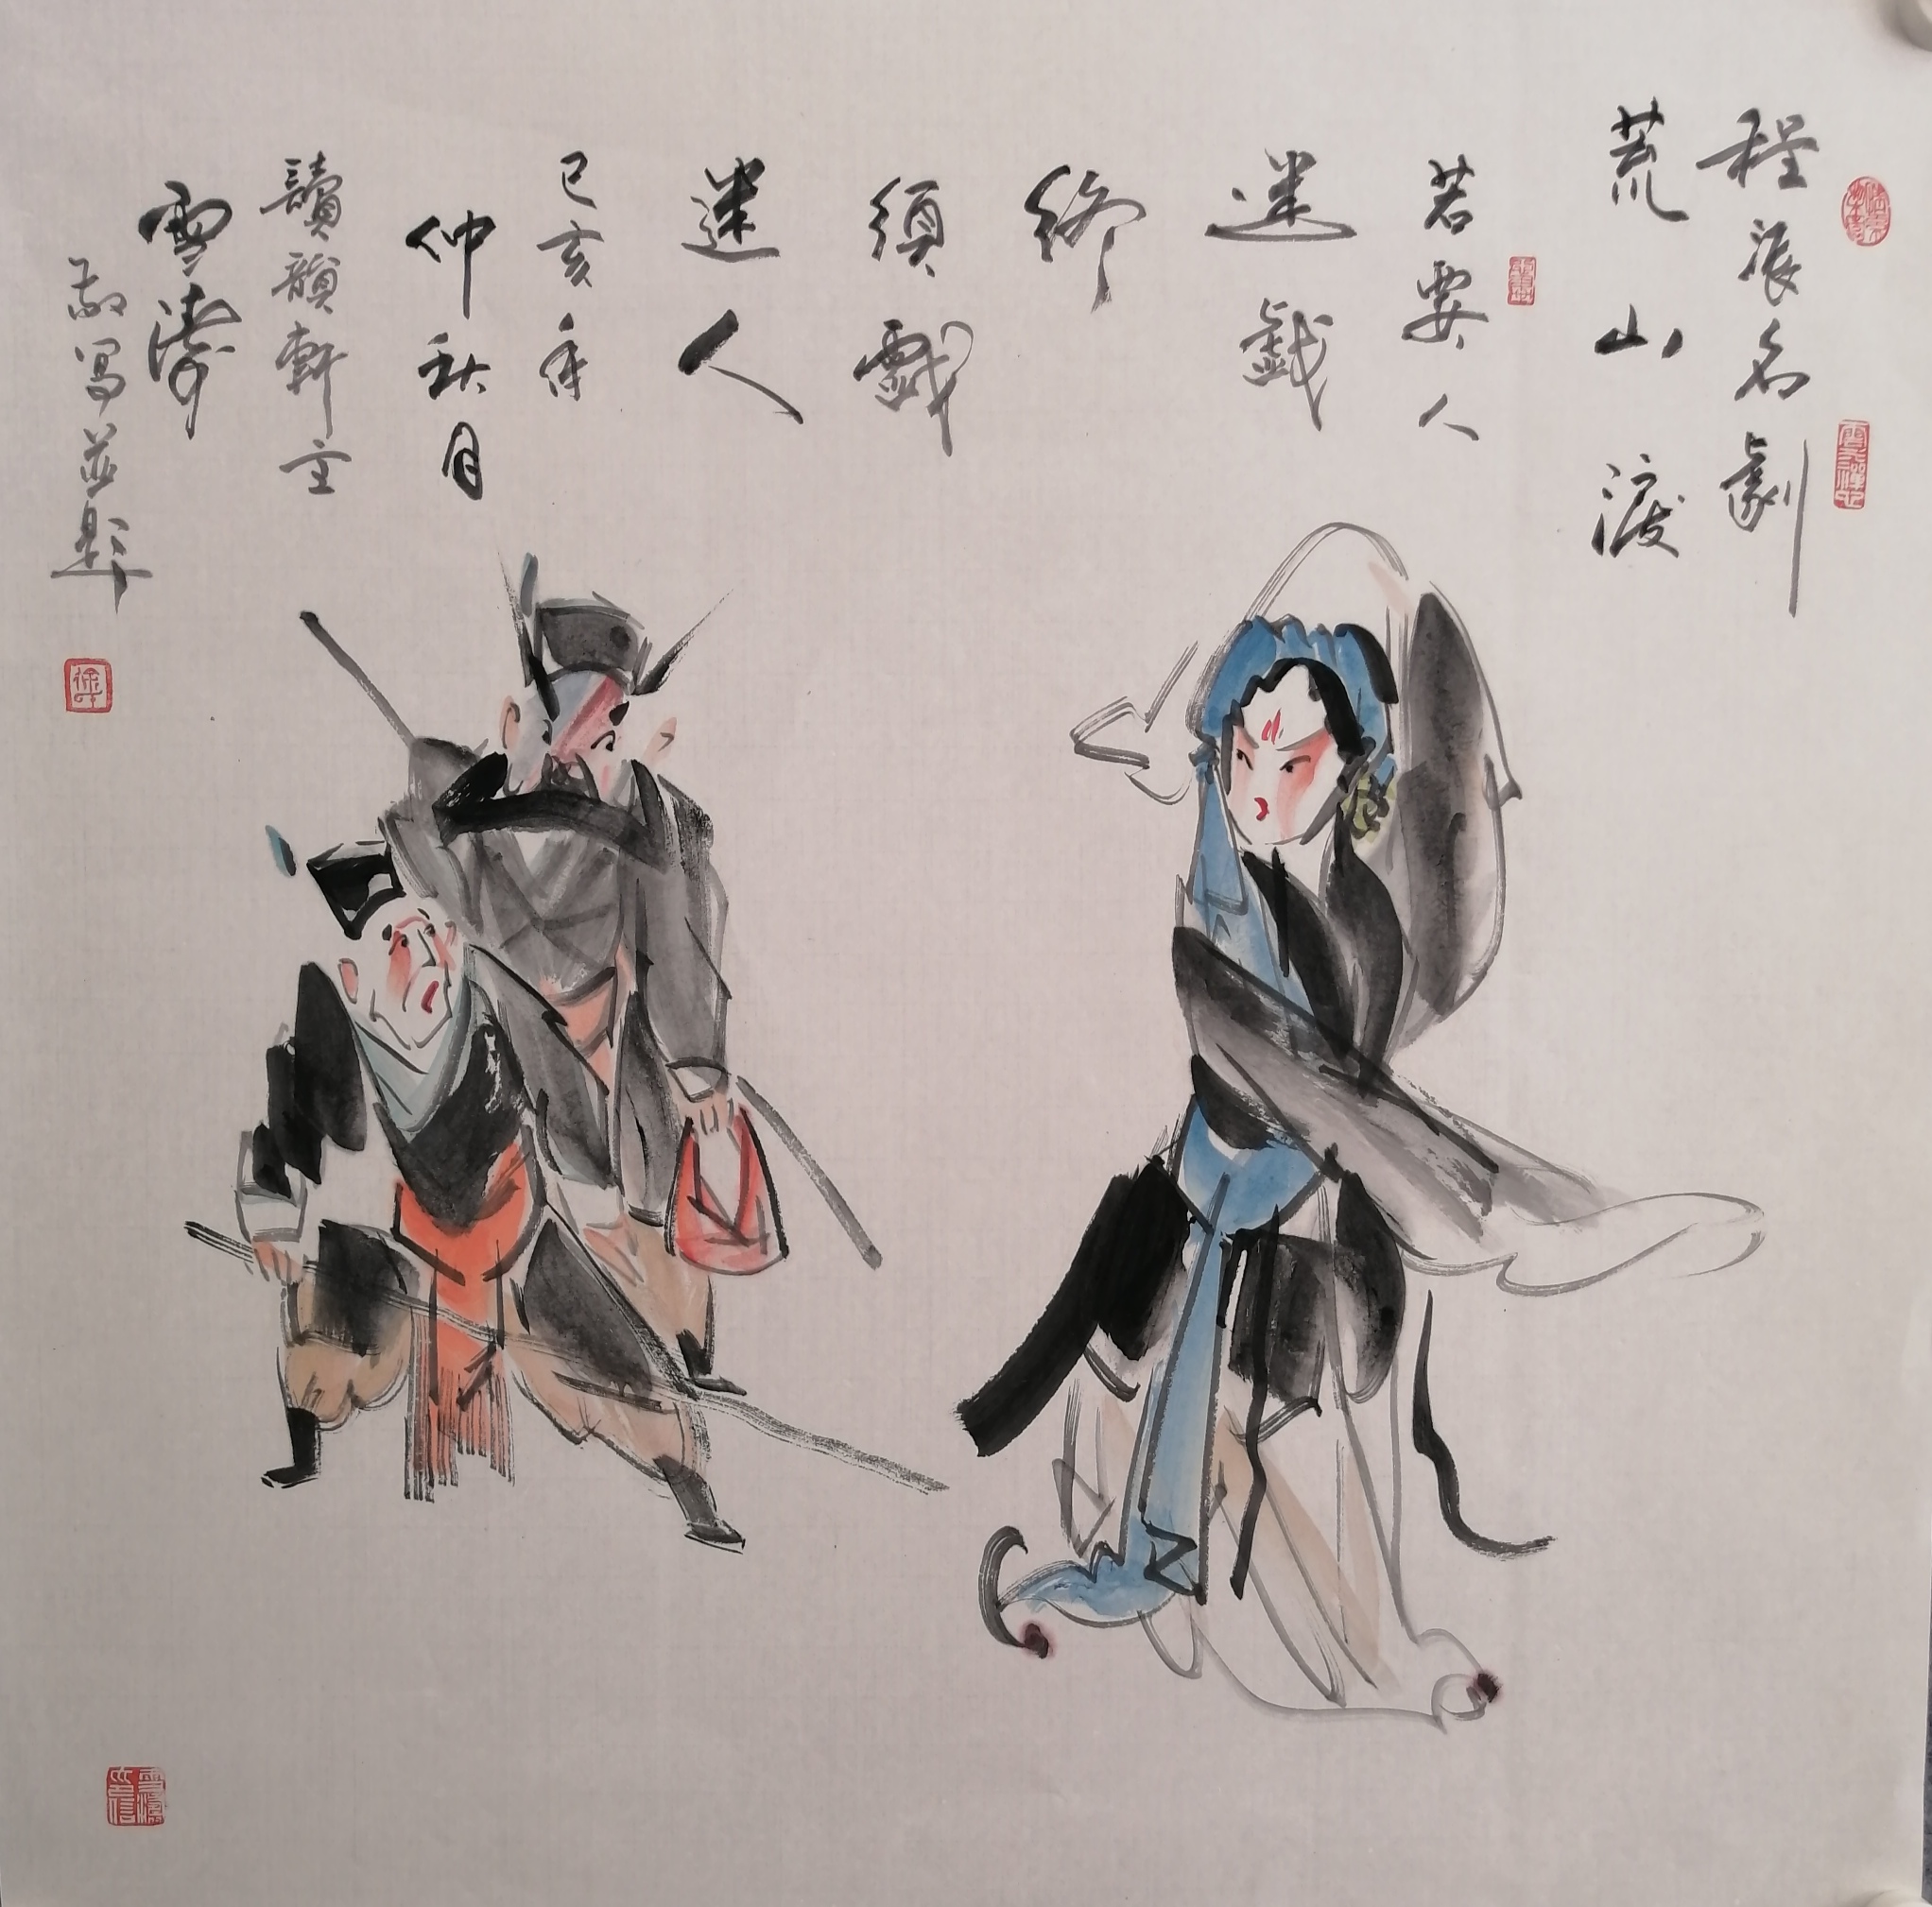 程派名劇
荒山淚
若要人
迷戯
終
須戯
迷人
己亥年
仲秋月
讀韻軒主
雪濤
敬寫並題